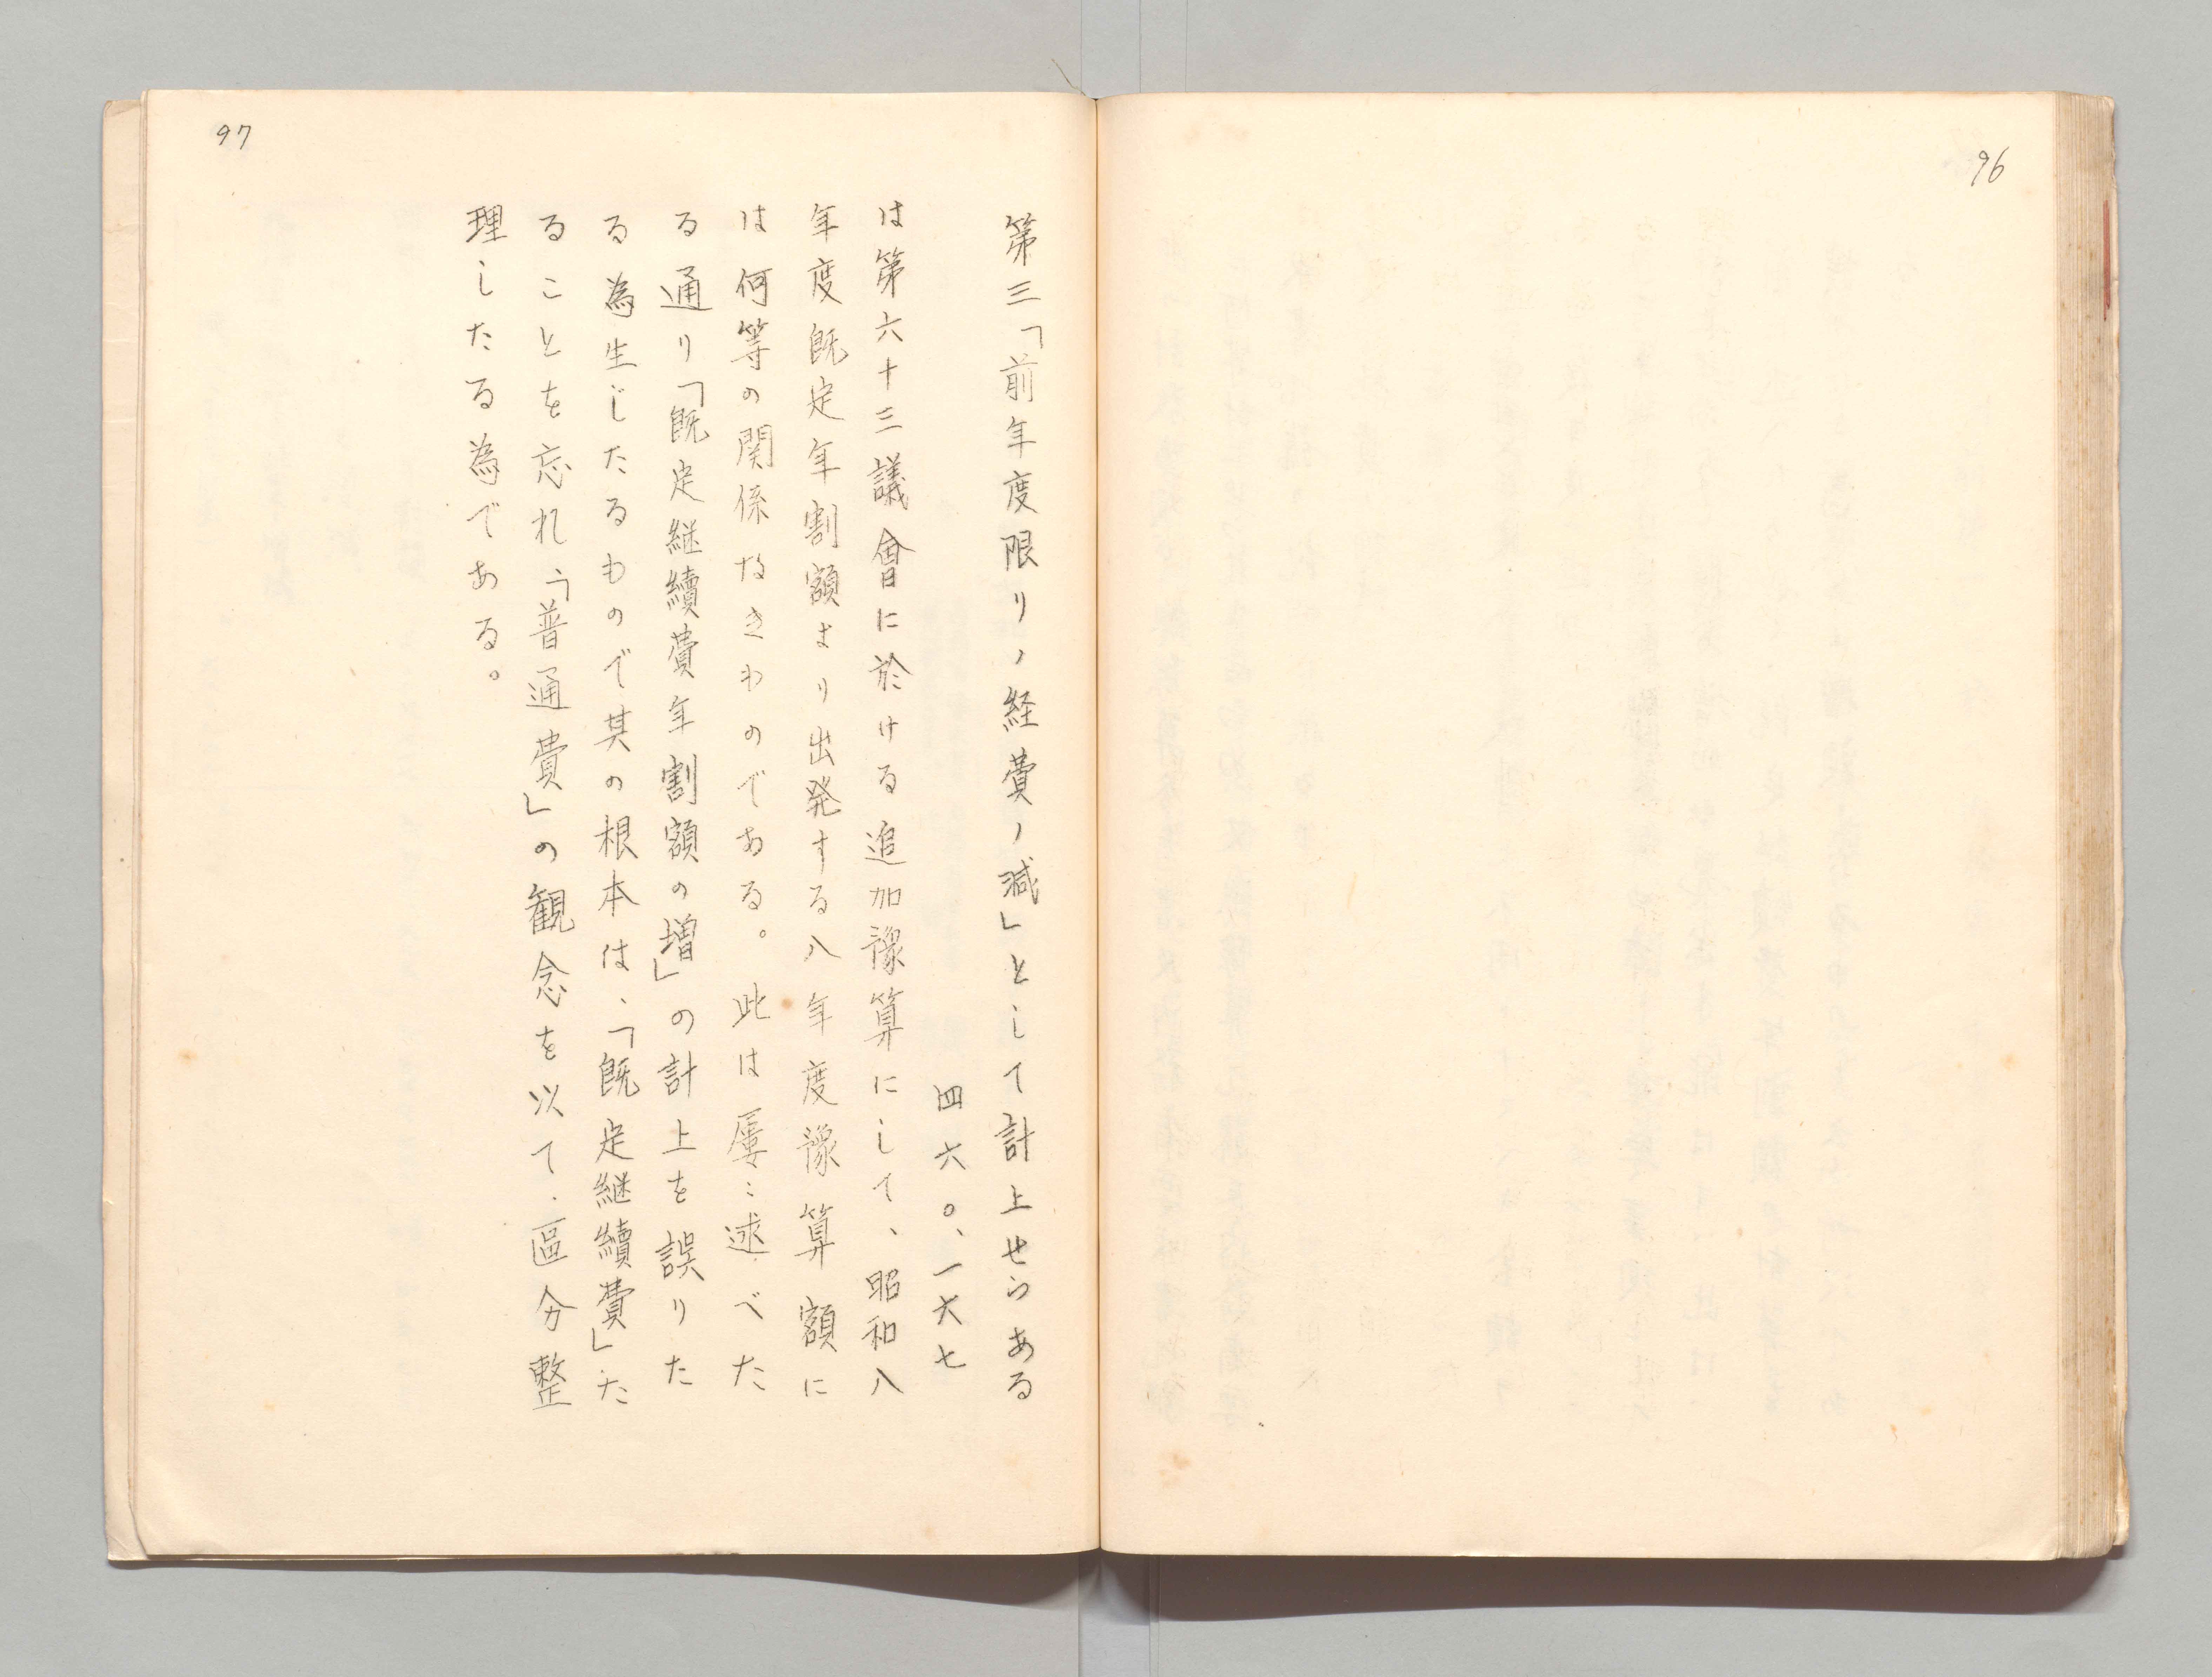 96
97
第三「前年度限リノ経費ノ減」として計上せらある
四六〇、一六七
は第六十三議會に於ける追加豫算にして、昭和八
年度既定年割額より出発する八年度豫算額に
は何等の関係なきものである。此は屡〻述べた
る通り「既定継續費年割額の増」の計上を誤りた
る為生じたるもので其の根本は、「既定継續費」た
ることを忘れ、「普通費」の観念を以て、區分整
理したる為である。